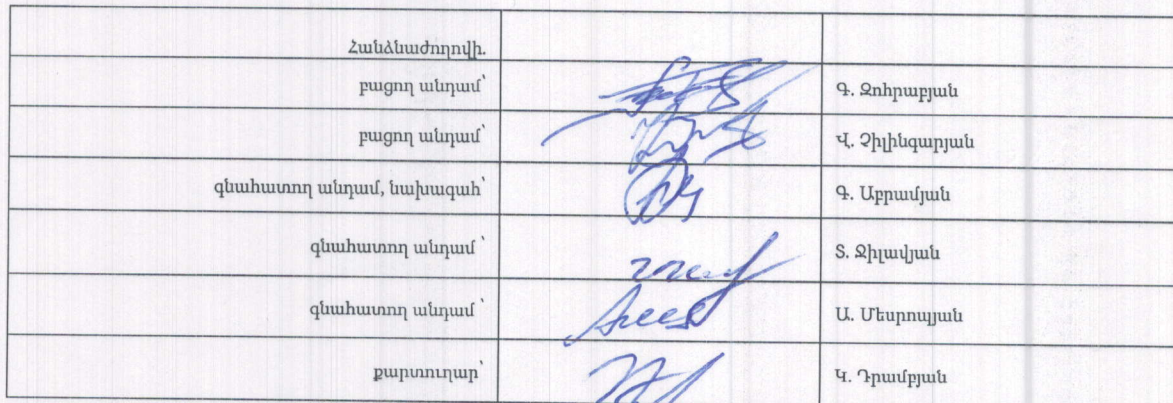 Հանձնաժողովի.
բացող անդամ՝ Գ. Զոհրաբյան
բացող անդամ՝ Վ. Չիլինգարյան
գնահատող անդամ, նախագահ՝ Գ. Աբրամյան
գնահատող անդամ ՝ Տ. Ջիլավյան
գնահատող անդամ ՝ Ա. Մեսրոպյան
քարտուղար՝ Կ. Դրամբյան